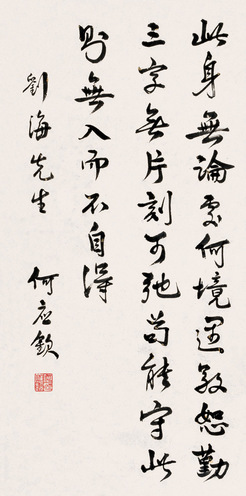 此身無論處何境遇敬恕勤
三字無片刻可弛苟能守此
則無入而不自得
劉海先生
何應欽